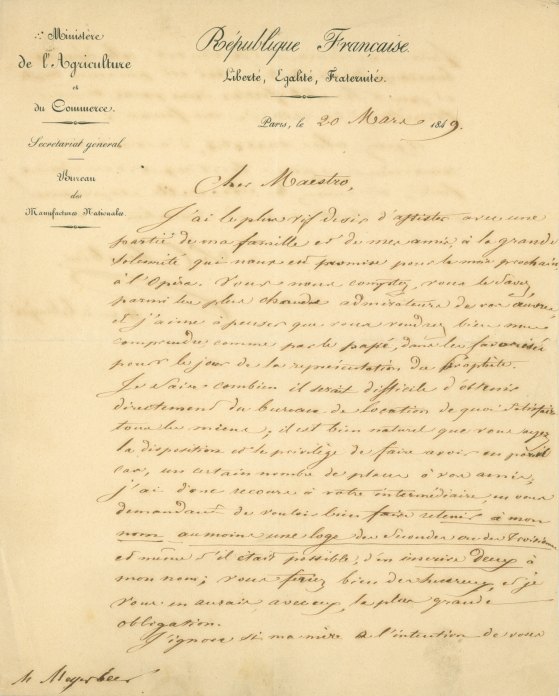 Ministère
de l'Agriculture
et
du Commerce.
Secrétariat général.
Bureau
des
Manufactures Nationales.
République Française.
Liberté, Egalité, Fraternité.
Paris, le 20 Mars 1849.
Cher Maestro,
J'ai le plus vif desir d'assister avec une
partie de ma famille et de mes amis, à la grande
solemnité qui nous est promise pour le mois prochain
à l'Opéra. Vous nous comptez, vous le savez,
parmi les plus chauds admirateurs de vos œuvres,
et j'aime à penser que vous voudrez bien nous
comprendre comme par le passé, dans les favorisés
pour le jour de la représentation du Prophète.
Je sais combien il serait difficile d'obtenir
directement du bureau de location de quoi satisfaire
tous les miens; il est bien naturel que vous ayez
la disposition et le privilège de faire avoir en pareil
cas, un certain nombre de places à vos amis,
j'ai donc recours à votre intermédiaire, en vous
demandant de vouloir bien faire retenir à mon
nom au moins une loge des Secondes ou des Troisièmes
et même s'il était possible, d'en inscrire deux à
mon nom; vous feriez bien des heureux, et je
vous en aurais avec eux, la plus grande
obligation.
J'ignore si ma mère a l'intention de vous
M. Meyerbeer